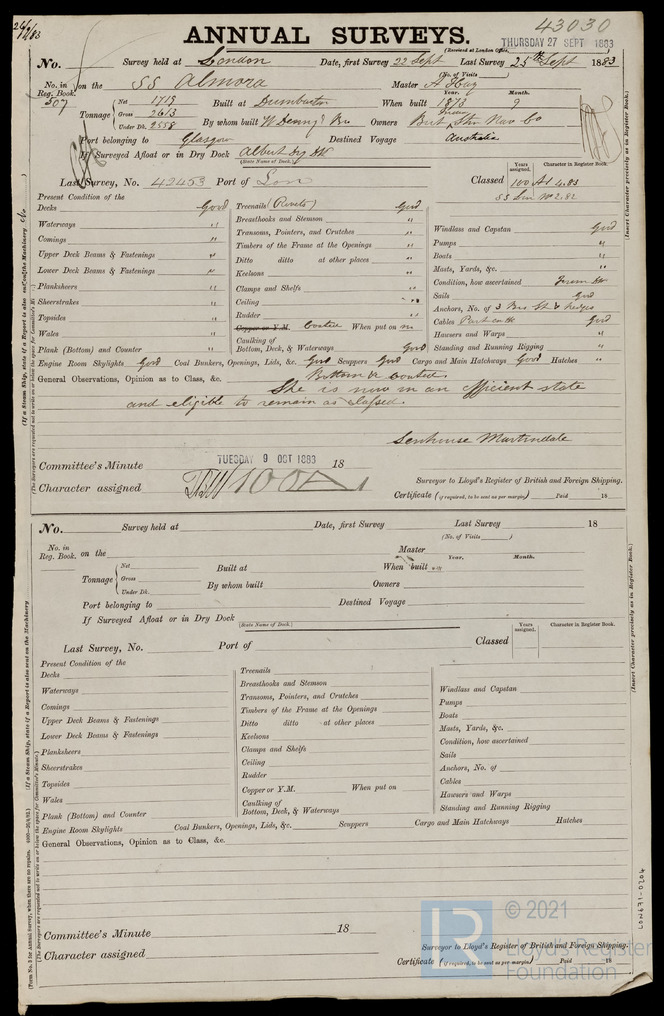 43030
ANNUAL SURVEYS.
(Received at London Office,
THURSDAY 27 SEPT 1883
No. Survey held at London Date, first Survey 22 Sept Last Survey 25th Sept 1883
(No. of Visits )
No. in Reg. Book. on the SS Almora Master A Hay
507
Year. Month.
Tonnage Net 1719 Built at Dumbarton When built 1873 9
Gross 2613
Under Dk. 2558 By whom built W Denny & Bro Owners Brit. Stm Nav Co
Port belonging to Glasgow Destined Voyage Australia
If Surveyed Afloat or in Dry Dock Albert Dry Dk
(State Name of Dock.)
Years assigned. Character in Register Book.
Last Survey, No. 42453 Port of Lon Classed 100 A1 4.83
SS Lon No 2.82
Present Condition of the
Decks Good Treenails (Rivets) Good
Waterways " Breasthooks and Stemson " Windlass and Capstan Good
Comings " Transoms, Pointers, and Crutches " Pumps "
Upper Deck Beams & Fastenings " Timbers of the Frame at the Openings " Boats "
Lower Deck Beams & Fastenings " Ditto ditto at other places " Masts, Yards, &c. "
Planksheers " Keelsons " Condition, how ascertained From Dk
Sheerstrakes " Clamps and Shelfs " Sails Good
Topsides " Ceiling " Anchors, No. of 3 Brs St & Kedges
Wales " Rudder " Cables Part on Dk Good
Plank (Bottom) and Counter " Copper or Y.M. Coated When put on Hawsers and Warps "
Caulking of Bottom, Deck, & Waterways Good Standing and Running Rigging "
Engine Room Skylights Good Coal Bunkers, Openings, Lids, &c. Good Scuppers Good Cargo and Main Hatchways Good Hatches "
General Observations, Opinion as to Class, &c. Bottom coated.
She is now in an efficient state
and eligible to remain as classed.
Senhouse Martindale
Committee's Minute TUESDAY 9 OCT 1883 18
Surveyor to Lloyd's Register of British and Foreign Shipping.
Character assigned 100A1
Certificate (if required, to be sent as per margin) Paid 18
No. Survey held at Date, first Survey Last Survey 18
(No. of Visits )
No. in Reg. Book. on the Master
Year. Month.
Tonnage Net Built at When built
Gross
Under Dk. By whom built Owners
Port belonging to Destined Voyage
If Surveyed Afloat or in Dry Dock
(State Name of Dock.)
Years assigned. Character in Register Book.
Last Survey, No. Port of Classed
Present Condition of the
Decks Treenails
Waterways Breasthooks and Stemson Windlass and Capstan
Comings Transoms, Pointers, and Crutches Pumps
Upper Deck Beams & Fastenings Timbers of the Frame at the Openings Boats
Lower Deck Beams & Fastenings Ditto ditto at other places Masts, Yards, &c.
Planksheers Keelsons Condition, how ascertained
Sheerstrakes Clamps and Shelfs Sails
Topsides Ceiling Anchors, No. of
Wales Rudder Cables
Plank (Bottom) and Counter Copper or Y.M. When put on Hawsers and Warps
Caulking of Bottom, Deck, & Waterways Standing and Running Rigging
Engine Room Skylights Coal Bunkers, Openings, Lids, &c. Scuppers Cargo and Main Hatchways Hatches
General Observations, Opinion as to Class, &c.
Committee's Minute 18
Surveyor to Lloyd's Register of British and Foreign Shipping.
Character assigned
Certificate (if required, to be sent as per margin) Paid 18
(Insert Character precisely as in Register Book.)
(Insert Character precisely as in Register Book.)
LON671-0206
LR
© 2021
Lloyd's Register
Foundation